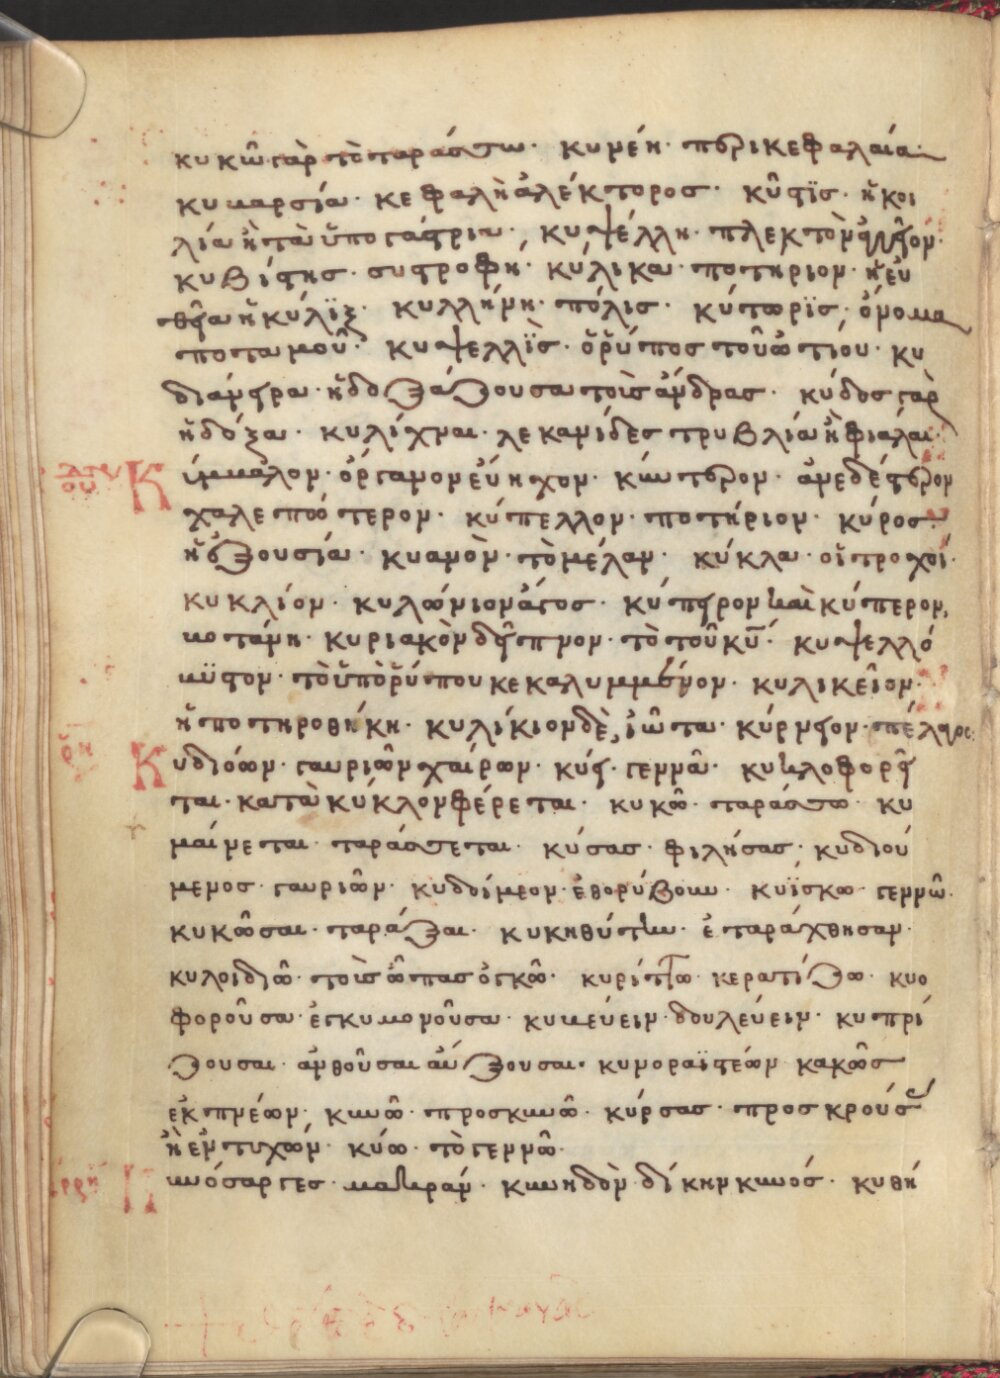 κυκῶ γὰρ τὸ ταράσσω· κυνέη· περικεφαλαία·
κυμαρσία· κεφαλὴ ἀλέκτορος· κῦτϊς· ἢ κοι
λία ἢ τὰ ὑπογάστρια· κυψέλλη· πλεκτὸν ἀγγεῖον·
κυβίστησ· συστροφὴ· κύλικα· ποτήριον· ἢ εὐ
θεῖα ἡ κύλϊξ· κυλλήνη· πόλις· κύταρϊς· ὄνομα
ποταμοῦ· κυψελλὶς· ὁ ῥύπος τοῦ ὠτίου· κυ
διάνειρα· ἡ δοξάζουσα τοὺς ἄνδρας· κύδος γὰρ
ἡ δόξα· κυλίχναι· λεκανίδες τρυβλία ἢ φιάλαι·
Κύμβαλον· ὄργανον εὔηχον· κύντερον· ἀνεδέστερον
χαλεπώτερον· κύπελλον· ποτήριον· κύρος·
ἡ ἐξουσία· κυανὸν· τὸ μέλαν· κύκλα· οἱ τροχοί·
κυκλίον· κυλώνιον ἄγος· κύπειρον καὶ κύπερον,
βοτάνη· κυριακὸν δεῖπνον· τὸ τοῦ κ̅υ̅· κυψελλό
βϋστον· τὸ ὑπὸ ῥύπου κεκαλυμμένον· κυλικεῖον·
ἡ ποτηροθήκη· κυλίκιον δὲ, ἰῶτα· κύρνειον·
Κυδιόων· γαυριῶν χαίρων· κύει· γεννᾶ· κυκλοφορεῖ
ται· κατὰ κύκλον φέρεται· κυκῶ· ταράσσω· κυ
μαίνεται· ταράσσεται· κύσας· φιλήσας· κυδιού
μενος· γαυριῶν· κυδοίμεον· ἐθορύβουν· κυΐσκω· γεννῶ·
κυκῶσαι· ταράξαι· κυκηθύτην· ἐταράχθησαν·
κυλοιδιῶ· τοὺς ὦπας ὀγκῶ· κυρίττω· κερατίζω· κυο
φοροῦσα· ἐγκυμονοῦσα· κυμεύειν· δουλεύειν· κυπρί
ζουσαι· ἀνθοῦσαι αὐξουσαι· κυνοραϊστέων· κακῶς
ἐκπνέων· κυνῶ· προσκυνῶ· κύρσας· προσκρούσας
ἢ ἐντυχών· κύω· τὸ γεννῶ·
Κυνόσαργες· μακράν· κυνηδὸν· δίκην κυνός· κυθή